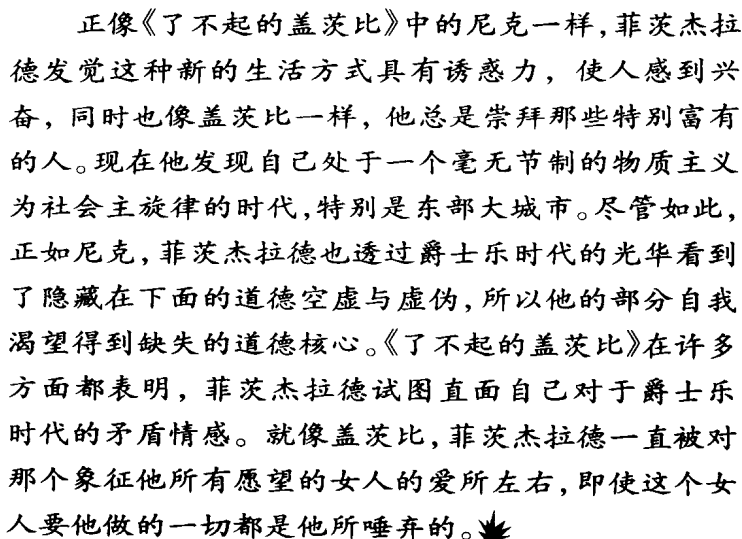 正像《了不起的盖茨比》中的尼克一样,菲茨杰拉
德发觉这种新的生活方式具有诱惑力，使人感到兴
奋，同时也像盖茨比一样，他总是崇拜那些特别富有
的人。现在他发现自己处于一个毫无节制的物质主义
为社会主旋律的时代,特别是东部大城市。尽管如此,
正如尼克,菲茨杰拉德也透过爵士乐时代的光华看到
了隐藏在下面的道德空虚与虚伪,所以他的部分自我
渴望得到缺失的道德核心。《了不起的盖茨比》在许多
方面都表明，菲茨杰拉德试图直面自己对于爵士乐
时代的矛盾情感。就像盖茨比,菲茨杰拉德一直被对
那个象征他所有愿望的女人的爱所左右,即使这个女
人要他做的一切都是他所唾弃的。